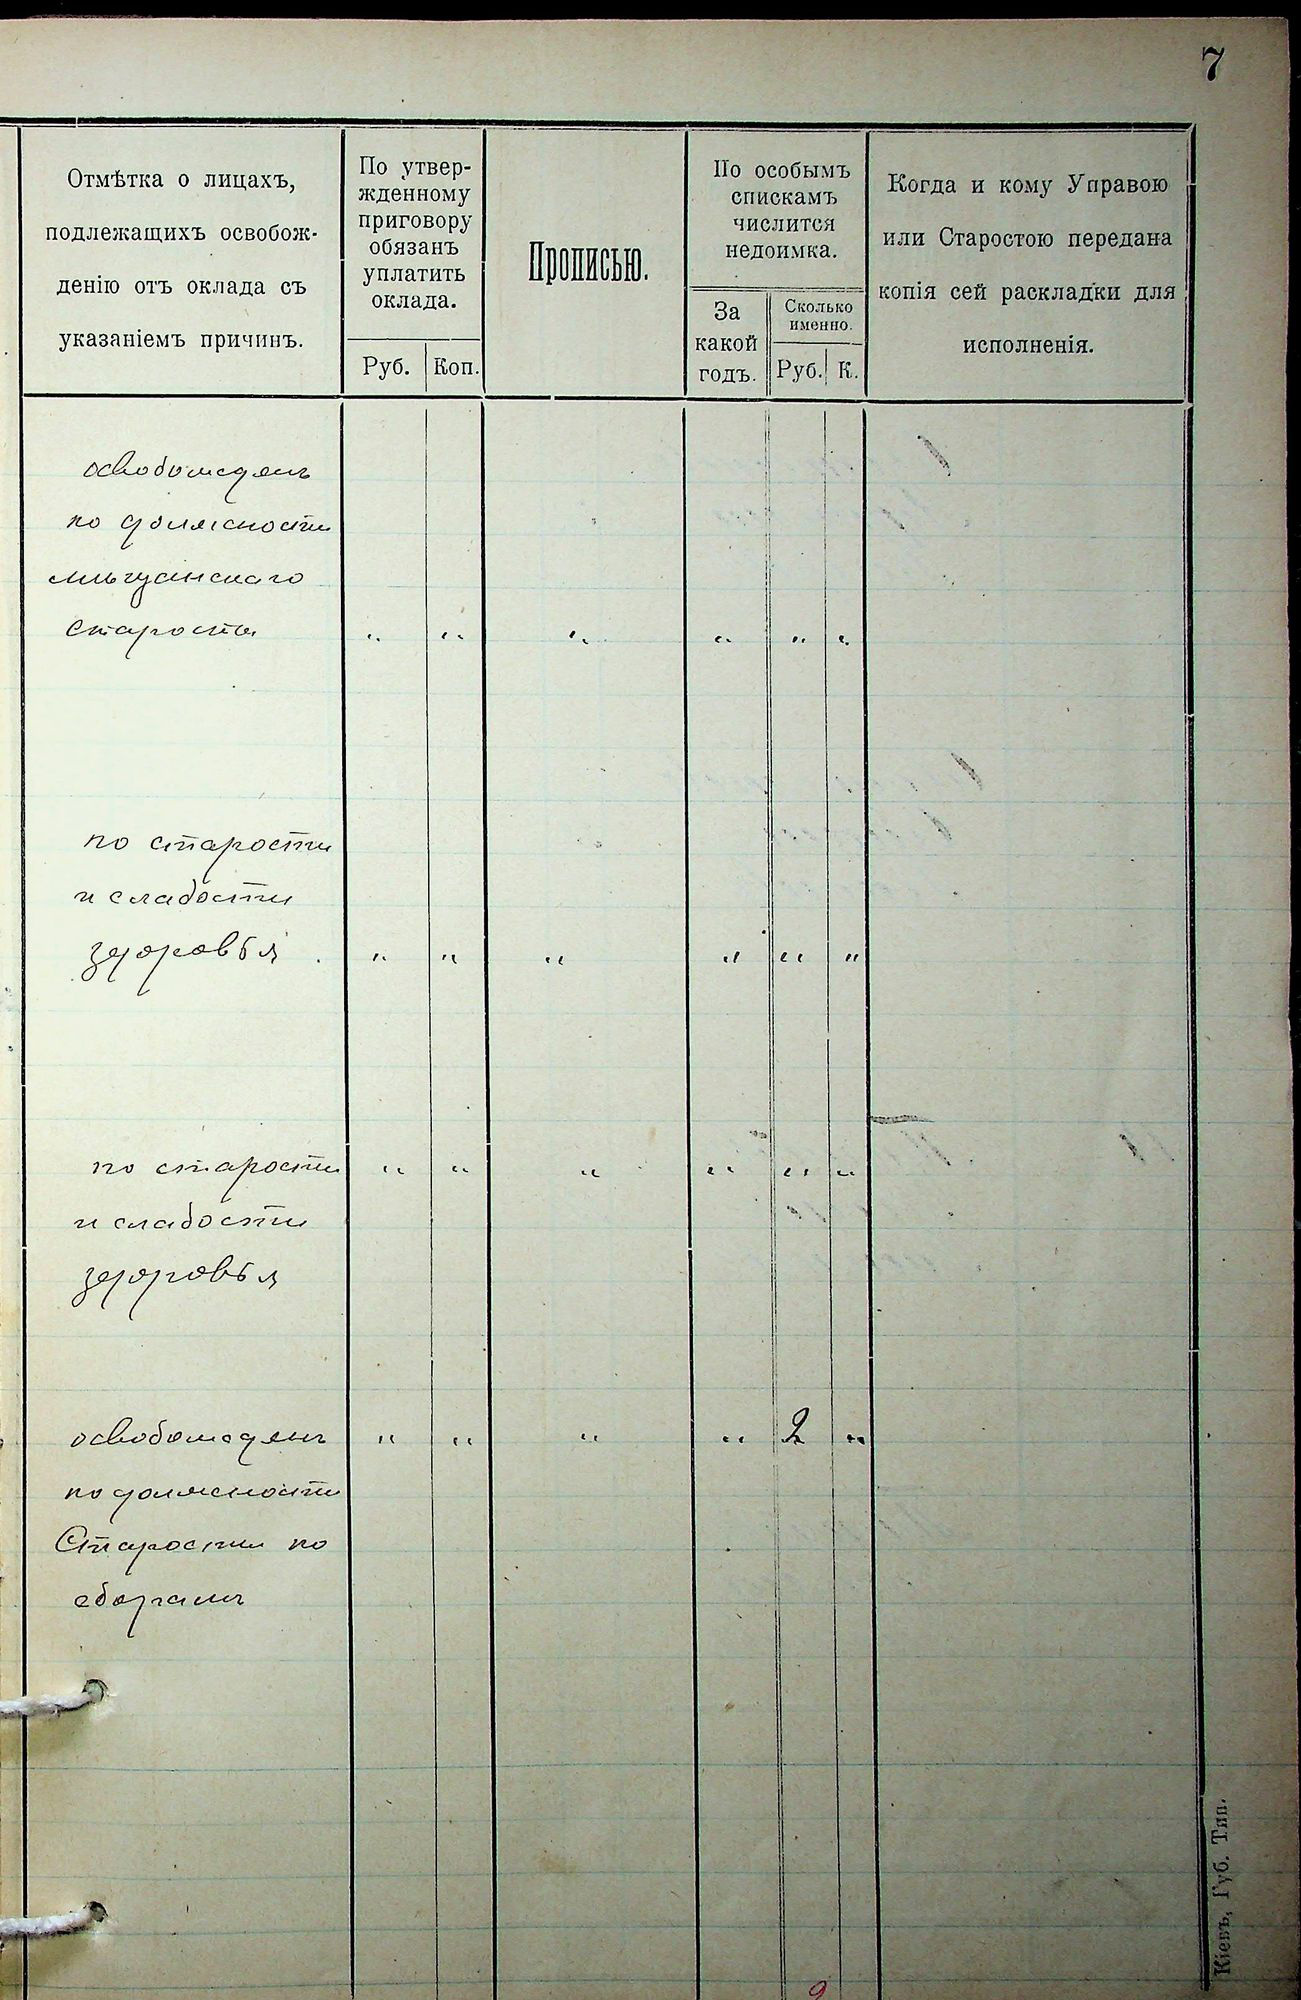 7
Отмѣтка о лицахъ,
подлежащихъ освобож-
денію отъ оклада съ
указаніемъ причинъ.
По утвер-
жденному
приговору
обязанъ
уплатить
оклада.
Руб.
Коп.
Прописью.
По особымъ
спискамъ
числится
недоимка.
За
какой
годъ.
Сколько
именно.
Руб.
К.
Когда и кому Управою
или Старостою передана
копія сей раскладки для
исполненія.
освобожденъ
по должности
мѣщанскаго
старосты " " " " " "
по старости
и слабости
здоровья " " " " " "
по старости " " " " " "
и слабости
здоровья
освобожденъ " " " " 2 "
по должности
Старосты по
сборамъ
Кіевъ, Губ. Тип.